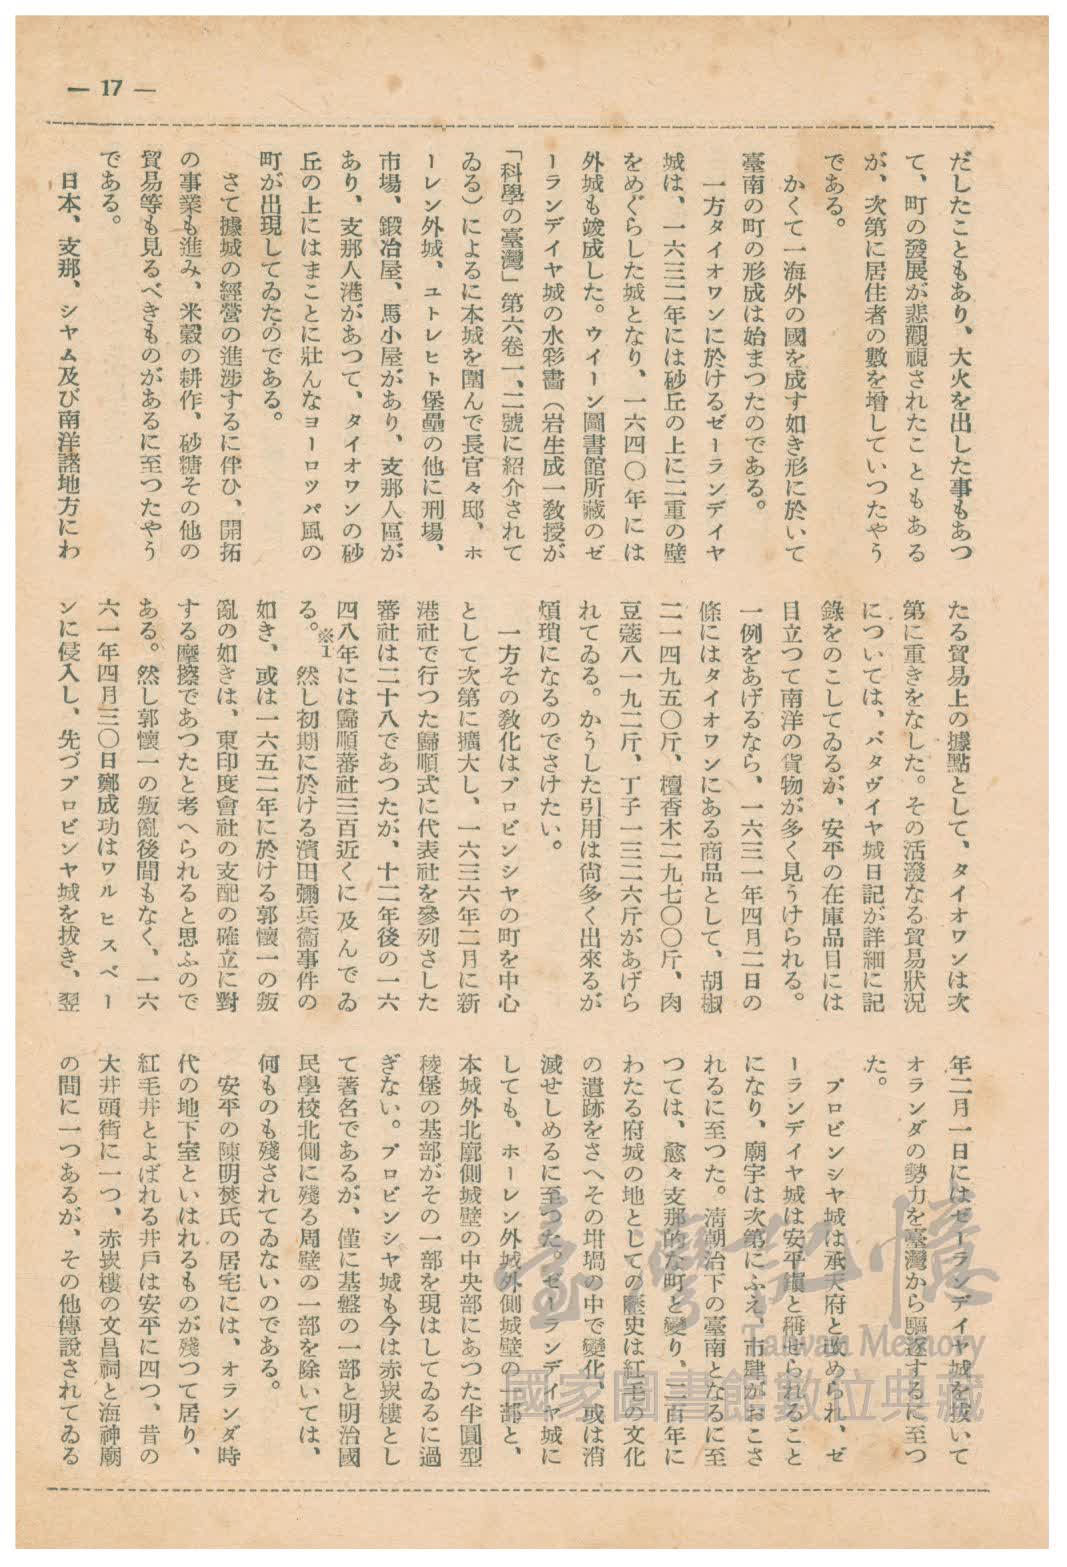 — 17 —
だしたこともあり、大火を出した事もあつ
て、町の發展が悲觀視されたこともある
が、次第に居住者の數を增していつたやう
である。
かくて一海外の國を成す如き形に於いて
臺南の町の形成は始まつたのである。
一方タイオワンに於けるゼーランデイヤ
城は、一六三二年には砂丘の上に二重の壁
をめぐらした城となり、一六四〇年には
外城も竣成した。ウイーン圖書館所藏のゼ
ーランデイヤ城の水彩畵（岩生成一敎授が
「科學の臺灣」第六卷一、二號に紹介されて
ゐる）によるに本城を圍んで長官々邸、ホ
ーレン外城、ユトレヒト堡壘の他に刑場、
市場、鍛冶屋、馬小屋があり、支那人區が
あり、支那人港があつて、タイオワンの砂
丘の上にはまことに壯んなヨーロツパ風の
町が出現してゐたのである。
さて據城の經營の進涉するに伴ひ、開拓
の事業も進み、米穀の耕作、砂糖その他の
貿易等も見るべきものがあるに至つたやう
である。
日本、支那、シヤム及び南洋諸地方にわ
たる貿易上の據點として、タイオワンは次
第に重きをなした。その活潑なる貿易狀況
については、バタヴイヤ城日記が詳細に記
錄をのこしてゐるが、安平の在庫品目には
目立つて南洋の貨物が多く見うけられる。
一例をあげるなら、一六三一年四月二日の
條にはタイオワンにある商品として、胡椒
二一四九五〇斤、檀香木二九七〇〇斤、肉
豆蔲八一九二斤、丁子一三二六斤があげら
れてゐる。かうした引用は尙多く出來るが
煩瑣になるのでさけたい。
一方その敎化はプロビンシヤの町を中心
として次第に擴大し、一六三六年二月に新
港社で行つた歸順式に代表社を參列さした
蕃社は二十八であつたが、十二年後の一六
四八年には歸順蕃社三百近くに及んでゐ
る。※1 然し初期に於ける濱田彌兵衞事件の
如き、或は一六五二年に於ける郭懷一の叛
亂の如きは、東印度會社の支配の確立に對
する摩擦であつたと考へられると思ふので
ある。然し郭懷一の叛亂後間もなく、一六
六一年四月三〇日鄭成功はワルヒスベー
ンに侵入し、先づプロビンヤ城を拔き、翌
年二月一日にはゼーランデイヤ城を拔いて
オランダの勢力を臺灣から驅逐するに至つ
た。
プロビンシヤ城は承天府と改められ、ゼ
ーランデイヤ城は安平鎭と稱せられること
になり、廟宇は次第にふえ、市肆がおこさ
れるに至つた。淸朝治下の臺南となるに至
つては、愈々支那的な町と變り、二百年に
わたる府城の地としての歷史は紅毛の文化
の遺跡をさへその坩堝の中で變化、或は消
滅せしめるに至つた。ゼーランデイヤ城に
しても、ホーレン外城外側城壁の一部と、
本城外北廓側城壁の中央部にあつた半圓型
稜堡の基部がその一部を現はしてゐるに過
ぎない。プロビンシヤ城も今は赤崁樓とし
て著名であるが、僅に基盤の一部と明治國
民學校北側に殘る周壁の一部を除いては、
何ものも殘されてゐないのである。
安平の陳明焚氏の居宅には、オランダ時
代の地下室といはれるものが殘つて居り、
紅毛井とよばれる井戶は安平に四つ、昔の
大井頭街に一つ、赤崁樓の文昌祠と海神廟
の間に一つあるが、その他傳說されてゐる
臺灣記憶
Taiwan Memory
國家圖書館數位典藏